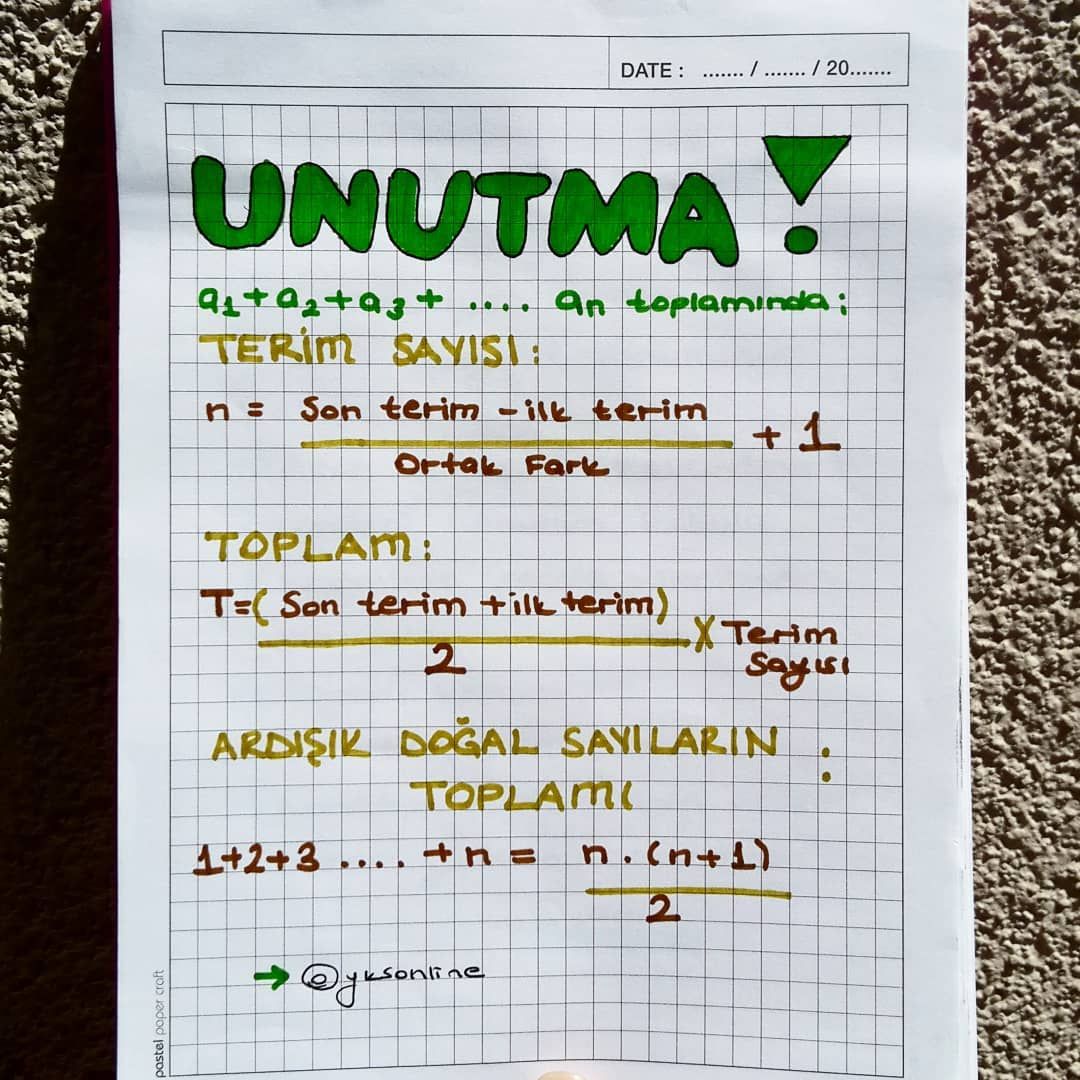 DATE : ....... / ....... / 20.......
UNUTMA!
a1+a2+a3+ .... an toplamında;
TERİM SAYISI:
n = Son terim - ilk terim + 1
Ortak Fark
TOPLAM:
T=( Son terim + ilk terim) X Terim
2 Sayısı
ARDIŞIK DOĞAL SAYILARIN :
TOPLAMI
1+2+3 .... +n = n.(n+1)
2
→ @yksonline
pastel paper craft